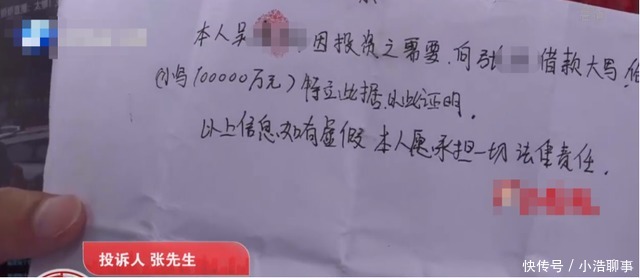 本人吴 因投资之需要,向张 借款大写:
(小写100000万元)特立此据以此证明.
以上信息如有虚假 本人愿承担一切法律责任.
投诉人 张先生
快传号 / 小浩聊事